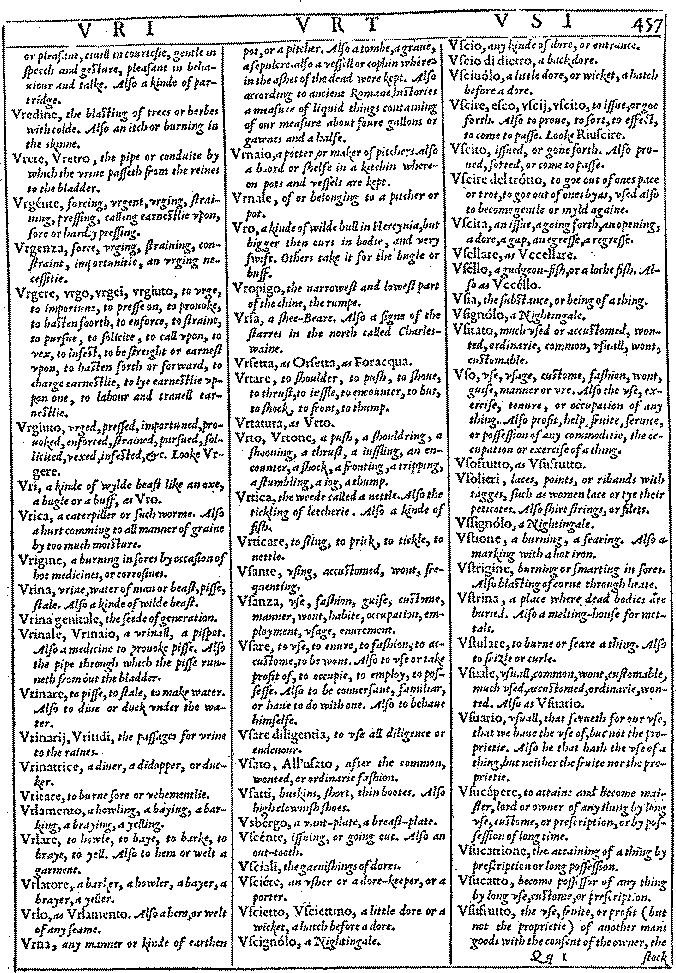 VRI
VRT
VSI
457
or pleasant, ciuill in courtesie, gentle in
speech and gesture, pleasant in beha-
uiour and talke. Also a kinde of par-
tridge.
Vredine, the blasting of trees or herbes
with colde. Also an itch or burning in
the skinne.
Vrete, Vretro, the pipe or conduite by
which the vrine passeth from the reines
to the bladder.
Vrgénte, forcing, vrgent, vrging, strai-
ning, pressing, calling earnestlie vpon,
sore or hardly pressing.
Vrgenza, force, vrging, straining, con-
straint, importunitie, an vrging ne-
cessitie.
Vrgere, vrgo, vrgei, vrgiuto, to vrge,
to importune, to presse on, to prouoke,
to hasten foorth, to enforce, to straint,
to pursue, to solicite, to call vpon, to
vex, to infest, to be streight or earnest
vpon, to hasten forth or forward, to
charge earnestlie, to lye earnestlie vp-
pon one, to labour and trauell ear-
nestlie.
Vrgiuto, vrged, pressed, importuned, pro-
uoked, enforced, strained, pursued, sol-
licited, vexed, infested, &c. Looke Vr-
gere.
Vri, a kinde of wylde beast like an oxe,
a bugle or a buff, as Vro.
Vrica, a caterpiller or such worme. Also
a hurt comming to all manner of graine
by too much moisture.
Vrigine, a burning in sores by occasion of
hot medicines, or corrosiues.
Vrina, vrine, water of man or beast, pisse,
stale. Also a kinde of wilde beast.
Vrina genitale, the seede of generation.
Vrinale, Vrinaio, a vrinall, a pispot.
Also a medicine to prouoke pisse. Also
the pipe through which the pisse run-
neth from out the bladder.
Vrinare, to pisse, to stale, to make water.
Also to diue or duck vnder the wa-
ter.
Vrinarij, the passages for vrine
to the raines.
Vrinatrice, a diuer, a didopper, or duc-
ker.
Vritare, to burne sore or vehementlie.
Vrlamento, a howling, a baying, a bar-
king, a braying, a yelling.
Vrlare, to howle, to baye, to barke, to
braye, to yell. Also to hem or welt a
garment.
Vrlatore, a barker, a howler, a bayer, a
brayer, a yeller.
Vrlo, as Vrlamento. Also a hem, or welt
of any seame.
Vrna, any manner or kinde of earthen
pot, or a pitcher. Also a tombe, a graue,
a sepulcre also a vessell or cophin where-
in the ashes of the dead were kept. Also
according to ancient Romane histories
a measure of liquid things containing
of our measure about foure gallons or
gawnes and a halfe.
Vrnaio, a potter or maker of pitchers. Also
a boord or shelfe in a kitchin where-
on pots and vessels are kept.
Vrnale, of or belonging to a pitcher or
pot.
Vro, a kinde of wilde bull in Hercynia, but
bigger then ours in bodie, and very
swift. Others take it for the bugle or
buff.
Vropigo, the narrowest and lowest part
of the chine, the rumpe.
Vrsa, a shee-Beare. Also a signe of the
starres in the north called Charles-
waine.
Vrsetta, as Orsetta, as Foracqua.
Vrtare, to shoulder, to push, to shoue,
to thrust, to iustle, to encounter, to but,
to shock, to front, to thump.
Vrtatura, as Vrto.
Vrto, Vrtone, a push, a shouldring, a
shoouing, a thrust, a iustling, an en-
counter, a shock, a fronting, a tripping,
a stumbling, a ing, a thump.
Vrtica, the weede called a nettle. Also the
tickling of letcherie. Also a kinde of
fish.
Vrticare, to sting, to prick, to tickle, to
nettle.
Vsante, vsing, accustomed, wont, fre-
quenting.
Vsanza, vse, fashion, guise, custome,
manner, wont, habite, occupation, em-
ployment, vsage, enurement.
Vsare, to vse, to enure, to fashion, to ac-
custome, to be wont. Also to vse or take
profit of, to occupie, to employ, to pos-
sesse. Also to be conuersant, familiar,
or haue to do with one. Also to behaue
himselfe.
Vsare diligentia, to vse all diligence or
endeuour.
Vsato, All'vsato, after the common,
wonted, or ordinarie fashion.
Vsatti, buskins, short, thin bootes. Also
high clownish shoes.
Vsbergo, a vant-plate, a breast-plate.
Vscénte, issuing, or going out. Also an
out-tooth.
Vsciali, the garnishings of dores.
Vsciére, an vsher or a dore-keeper, or a
porter.
Vscietto, Vsciettino, a little dore or a
wicket, a hatch before a dore.
Vscignólo, a Nightingale.
Vscio, any kinde of dore, or entrance.
Vscio di dietro, a backdore.
Vsciuólo, a little dore, or wicket, a hatch
before a dore.
Vscire, esco, vscij, vscito, to issue, or goe
forth. Also to proue, to sort, to effect,
to come to passe. Looke Riuscire.
Vscito, issued, or gone forth. Also pro-
ued, sorted, or come to passe.
Vscire del trotto, to go out of ones pace
or trot, to goe out of ones byas, vsed also
to become gentle or myld againe.
Vscita, an issue, a going forth, an opening,
a dore, a gap, an egresse, a regresse.
Vsellare, as Vccellare.
Vsello, a gudgeon-fish, or a loche fish. Al-
so as Vccéllo.
Vsia, the substance, or being of a thing.
Vsignólo, a Nightingale.
Vsitato, much vsed or accustomed, won-
ted, ordinarie, common, vsuall, wont,
customable.
Vso, vse, vsage, custome, fashion, wont,
guise, manner or vre. Also the vse, ex-
ercise, tenure, or occupation of any
thing. Also profit, help, fruite, seruice,
or possession of any commoditie, the oc-
cupation or exercise of a thing.
Vsofrutto, as Vsufrutto.
Vsolieri, laces, points, or ribands with
tagges, such as women lace or tye their
peticotes. Also shirt strings, or filets.
Vssignólo, a Nightingale.
Vstione, a burning, a searing. Also a
marking with a hot iron.
Vstrigine, burning or smarting in sores.
Also blasting of corne through heate.
Vstrina, a place where dead bodies are
buried. Also a melting-house for met-
tals.
Vstulare, to burne or seare a thing. Also
to frizle or curle.
Vsuale, vsuall, common, wont, customable,
much vsed, accustomed, ordinarie, won-
ted. Also as Vsuario.
Vsuario, vsuall, that serueth for our vse,
that we haue the vse of, but not the pro-
prietie. Also he that hath the vse of a
thing, but neither the fruite nor the pro-
prietie.
Vsucápere, to attaine and become mai-
ster, lord or owner of any thing by long
vse, custome, or prescription, or by pos-
session of long time.
Vsucattione, the attaining of a thing by
prescription or long possession.
Vsucatto, become possessor of any thing
by long vse, custome, or prescription.
Vsufrutto, the vse, fruite, or profit (but
not the proprietie) of another mans
goods with the consent of the owner, the
Qq 1
stock